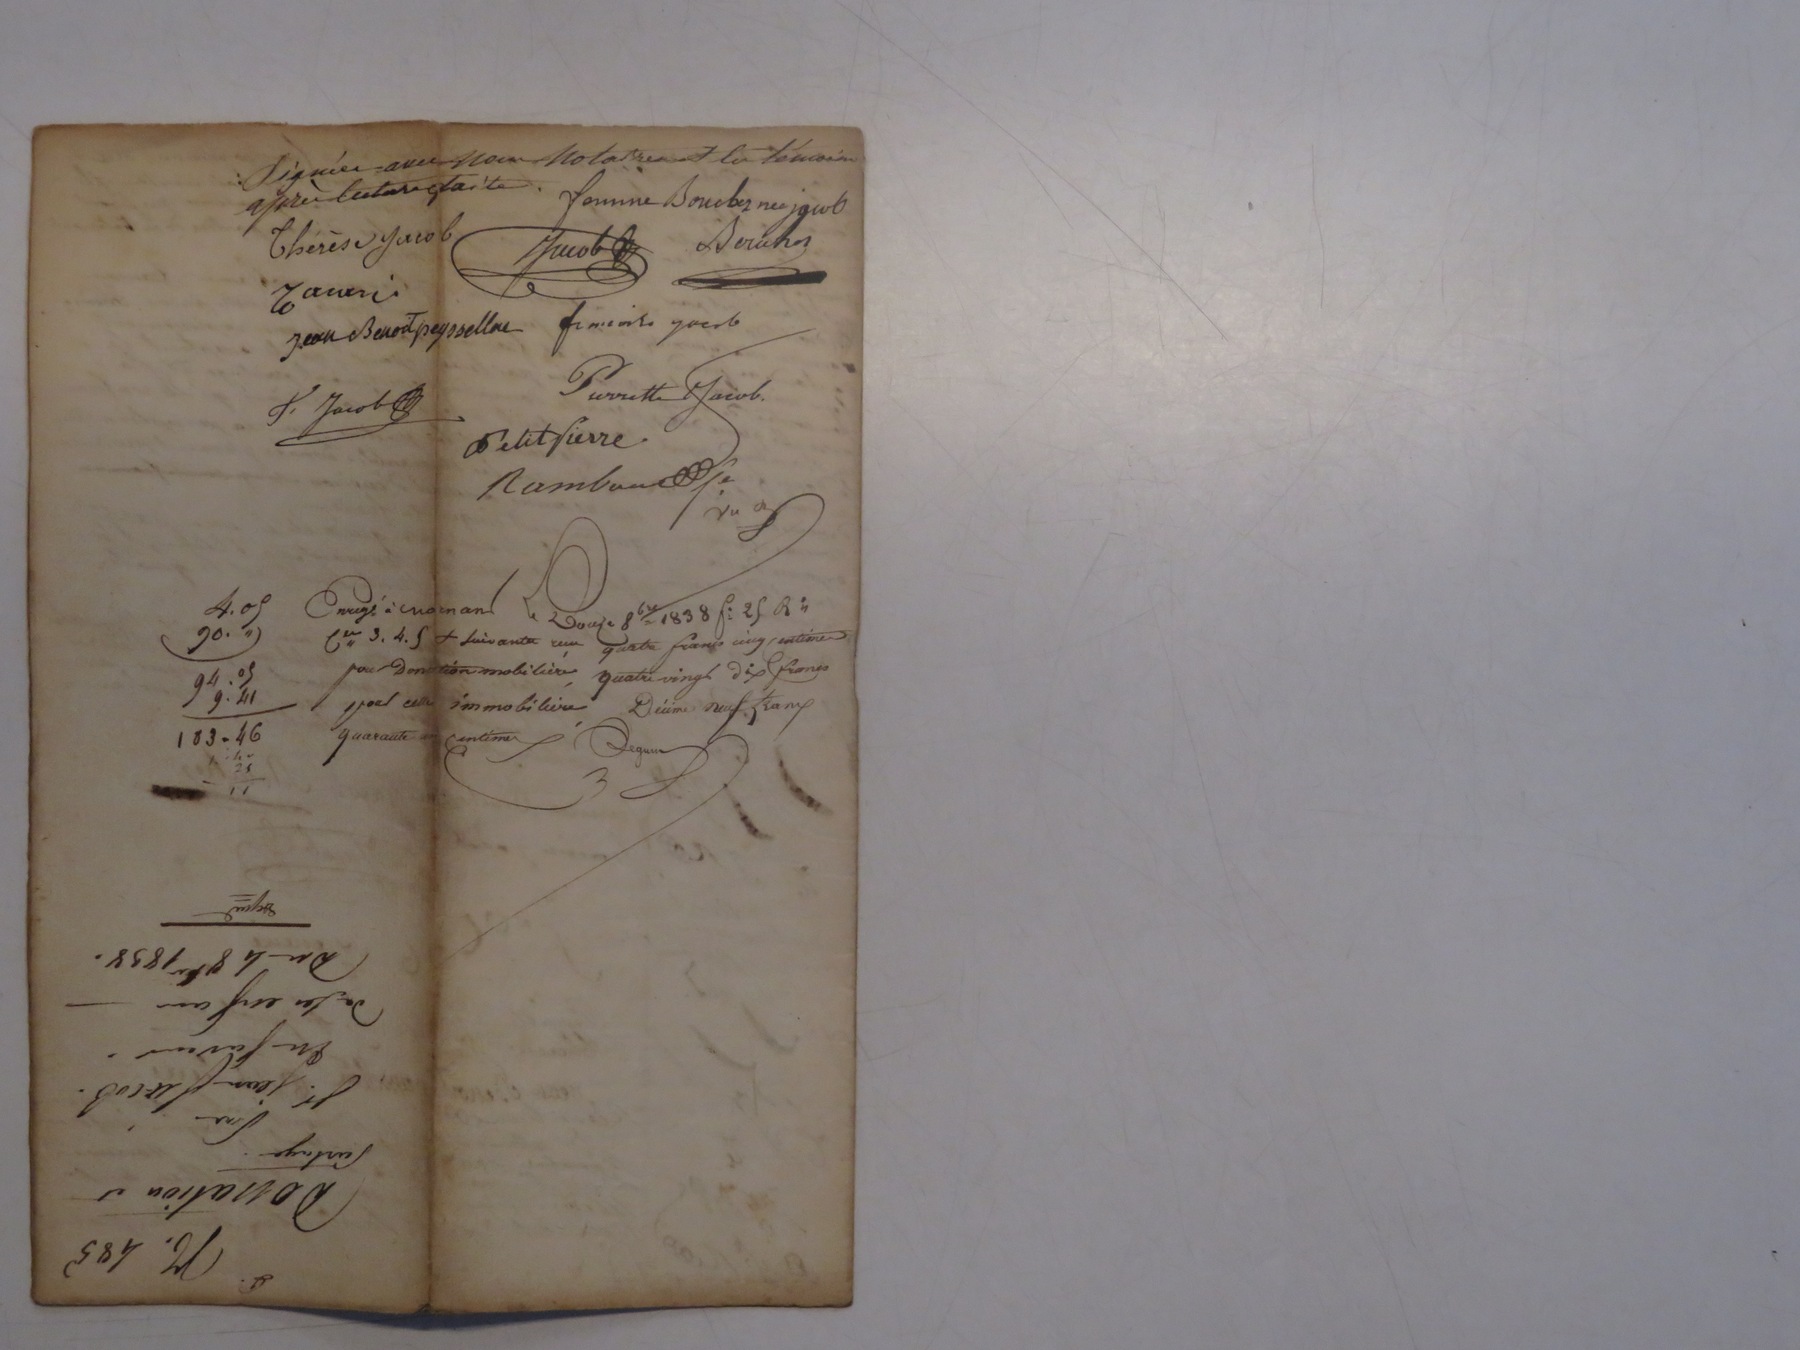 Signée avec nous Notaire et les témoins
après lecture faite.
femme Bouchez née jacob
Thérèse Jacob
Jacob
Jean Benoit peyssellon
francoise jacob
F. Jacob
Pierrette Jacob.
Petit pierre.
Rambaud
Vu
4.05
90. "
94.05
9.41
103.46
Enregé à mornant le Douze 8bre 1838 fo 25 Ro
Ces 3. 4. 5 et suivantes reçu quatre francs cinq centimes
pour Donation mobilière, quatre vingt dix francs
pour celle immobilière, Décime neuf francs
quarante un centimes
N. 485
Donation et
Partage.
Par
Sr. Jean Jacob.
En faveur
De ses enfans
Du 4 8bre 1838.